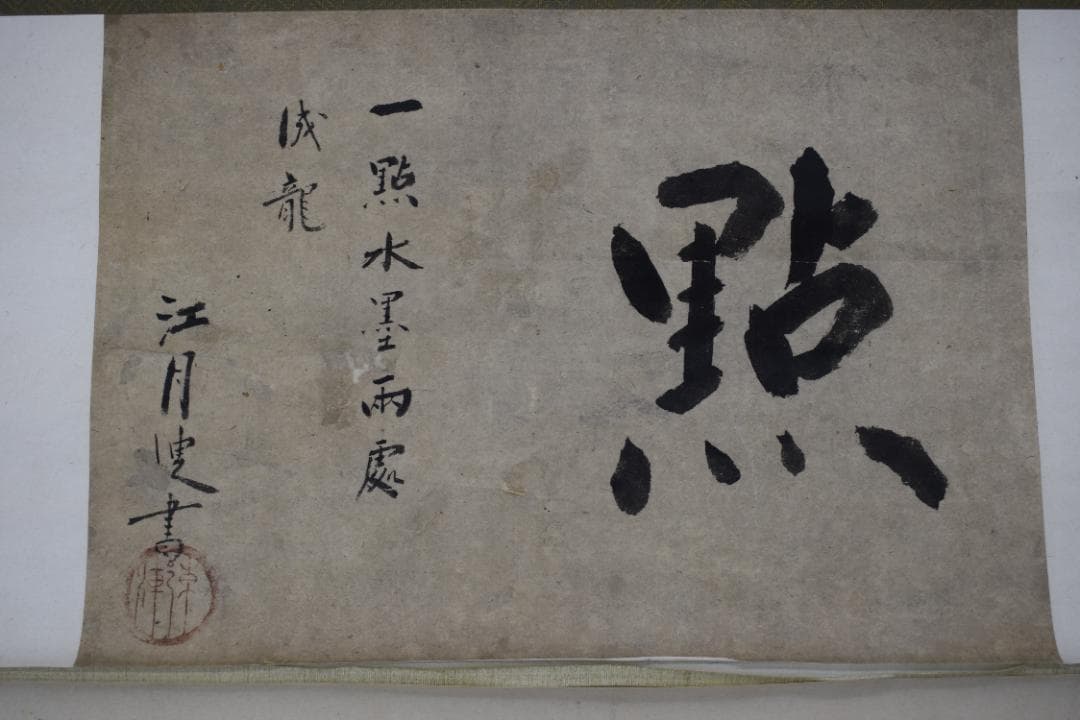 點
一點水墨兩處
成龍
江月叟書